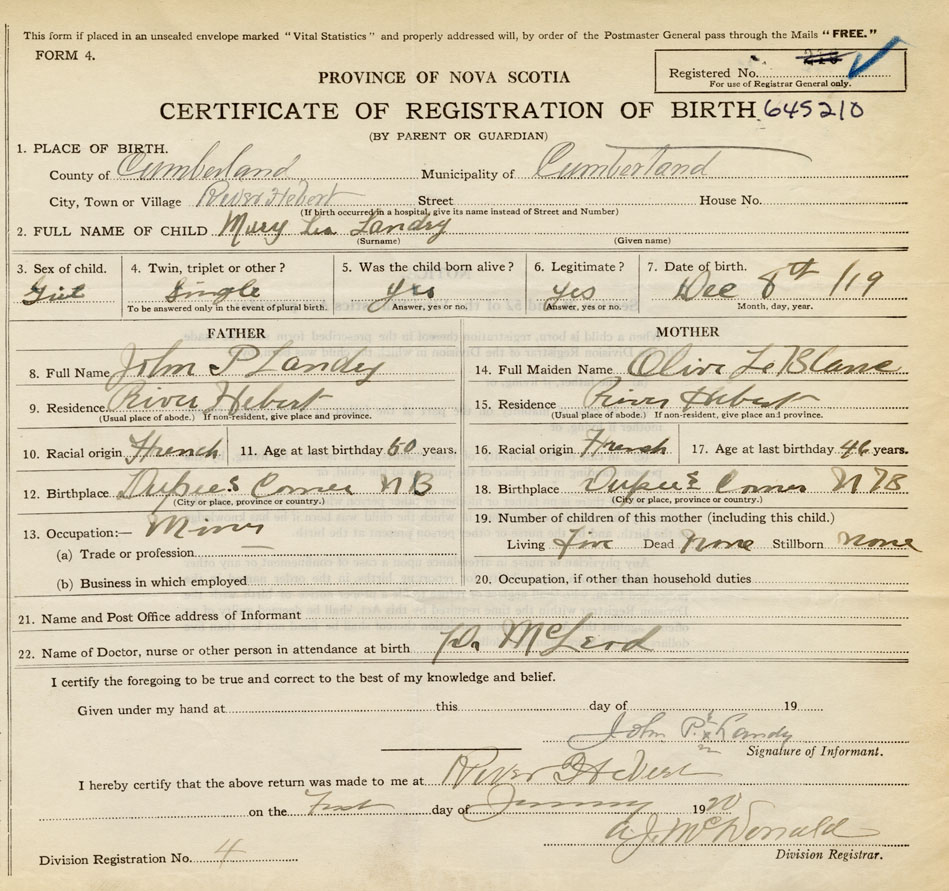 This form if placed in an unsealed envelope marked "Vital Statistics" and properly addressed will, by order of the Postmaster General pass through the Mails "FREE."
FORM 4.
PROVINCE OF NOVA SCOTIA
Registered No.
For use of Registrar General only.
CERTIFICATE OF REGISTRATION OF BIRTH 645210
(BY PARENT OR GUARDIAN)
1. PLACE OF BIRTH.
County of Cumberland Municipality of Cumberland
City, Town or Village River Hebert Street House No.
(If birth occurred in a hospital, give its name instead of Street and Number)
2. FULL NAME OF CHILD Mary Landry
(Surname) (Given name)
3. Sex of child. 4. Twin, triplet or other? 5. Was the child born alive? 6. Legitimate? 7. Date of birth.
Girl Single yes yes Dec 8th /19
To be answered only in the event of plural birth. Answer, yes or no. Answer, yes or no. Month, day, year.
FATHER MOTHER
8. Full Name John P Landry 14. Full Maiden Name Olive Le Blanc
9. Residence River Hebert 15. Residence River Hebert
(Usual place of abode.) If non-resident, give place and province. (Usual place of abode.) If non-resident, give place and province.
10. Racial origin French 11. Age at last birthday 50 years. 16. Racial origin French 17. Age at last birthday 46 years.
12. Birthplace Dupee's Corner N B 18. Birthplace Dupee's Corner N B
(City or place, province or country.) (City or place, province or country.)
13. Occupation:— Miner 19. Number of children of this mother (including this child.)
(a) Trade or profession Living five Dead None Stillborn none
(b) Business in which employed 20. Occupation, if other than household duties
21. Name and Post Office address of Informant
22. Name of Doctor, nurse or other person in attendance at birth Dr McLeod
I certify the foregoing to be true and correct to the best of my knowledge and belief.
Given under my hand at this day of 19
John P. x Landry
Signature of Informant.
I hereby certify that the above return was made to me at River Hebert
on the First day of January 1920
A J. McDonald
Division Registrar.
Division Registration No. 4